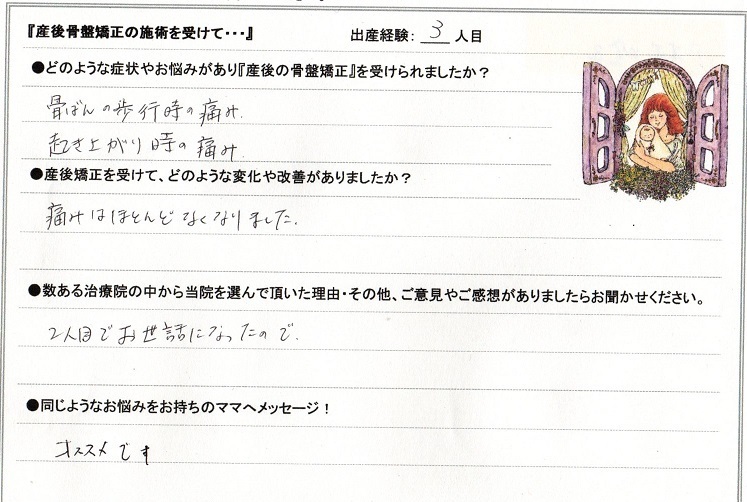 『産後骨盤矯正の施術を受けて・・・』 出産経験： 3 人目
●どのような症状やお悩みがあり『産後の骨盤矯正』を受けられましたか？
骨ばんの歩行時の痛み.
起き上がり時の痛み.
●産後矯正を受けて、どのような変化や改善がありましたか？
痛みはほとんどなくなりました.
●数ある治療院の中から当院を選んで頂いた理由・その他、ご意見やご感想がありましたらお聞かせください。
2人目でお世話になったので.
●同じようなお悩みをお持ちのママへメッセージ！
オススメです